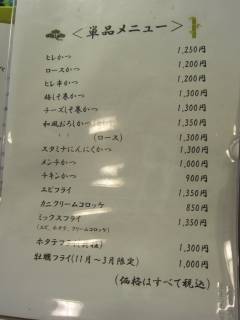 ＜単品メニュー＞
ヒレかつ 1,250円
ロースかつ 1,200円
ヒレ串かつ 1,200円
梅しそ巻かつ 1,300円
チーズしそ巻かつ 1,300円
和風おろしかつ 1,350円
(ロース) 1,300円
スタミナにんにくかつ 1,300円
メンチかつ 1,000円
チキンかつ 900円
エビフライ 1,350円
カニクリームコロッケ 850円
ミックスフライ 1,350円
(エビ、ホタテ、クリームコロッケ)
ホタテフライ 1,300円
牡蠣フライ(11月～3月限定) 1,000円
(価格はすべて税込)